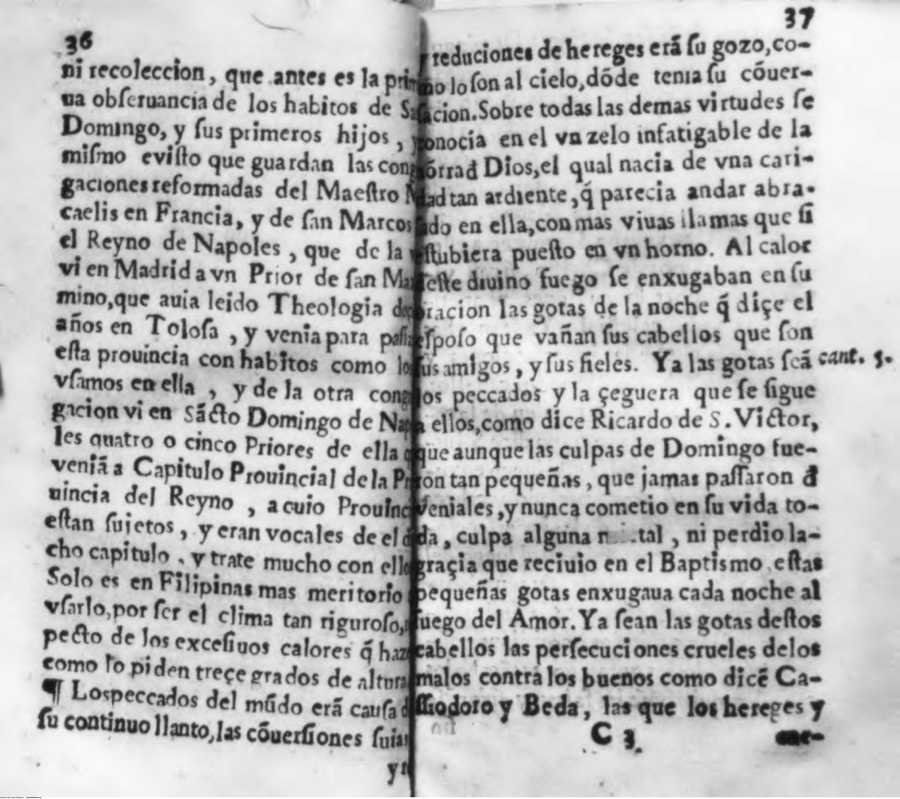 36
ni recoleccion, que antes es la pri
ua obseruancia de los habitos de S
Domingo, y sus primeros hijos,
mismo evisto que guardan las con
gaciones reformadas del Maestro
caelis en Francia, y de san Marcos
el Reyno de Napoles, que de la
vi en Madrid a vn Prior de san Ma
mino, que auia leido Theologia
años en Tolosa, y venia para passa
esta prouincia con habitos como lo
vsamos en ella, y de la otra cong
gacion vi en Sãcto Domingo de Nap
les quatro o cinco Priores de ella
veniã a Capitulo Prouincial de la Pr
uincia del Reyno, a cuio Prouinc
estan sujetos, y eran vocales de el d
cho capitulo, y trate mucho con ello
Solo es en Filipinas mas meritorio
vsarlo, por ser el clima tan riguroso,
pecto de los excesiuos calores q̃ haz
como lo piden treçe grados de altura
¶ Los peccados del mũdo erã causa d
su continuo llanto, las cõuersiones suias
y r
37
reduciones de hereges erã su gozo, co-
mo lo son al cielo, dõde tenia su cõuer-
sacion. Sobre todas las demas virtudes se
conocia en el vn zelo infatigable de la
õrra d Dios, el qual nacia de vna cari-
dad tan ardiente, q̃ parecia andar abra-
do en ella, con mas viuas llamas que si
estubiera puesto en vn horno. Al calor
este diuino fuego se enxugaban en su
oracion las gotas de la noche q̃ diçe el
esposo que vañan sus cabellos que son
sus amigos, y sus fieles. Ya las gotas seã cant. 5.
los peccados y la çeguera que se sigue
a ellos, como dice Ricardo de S. Victor,
que aunque las culpas de Domingo fue-
ron tan pequeñas, que jamas passaron d
veniales, y nunca cometio en su vida to-
da, culpa alguna m tal, ni perdio la
graçia que reciuio en el Baptismo estas
pequeñas gotas enxugaua cada noche al
fuego del Amor. Ya sean las gotas destos
cabellos las persecuciones crueles delos
malos contra los buenos como dicẽ Ca-
ssiodoro y Beda, las que los hereges y
C 3.
ene-